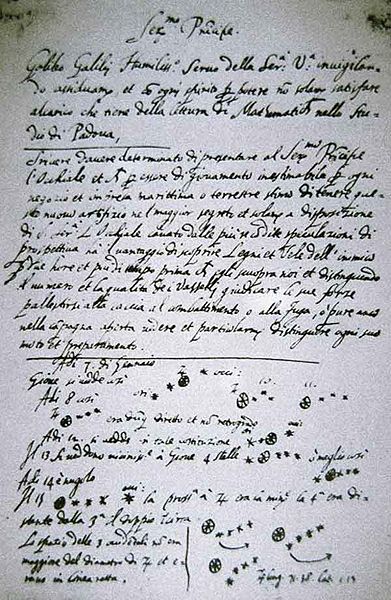 Ser.mo Principe.
Galileo Galilei Humiliss.o Servo della Ser.a V.a invigilan-
do assiduamente, et con ogni spirito per potere non solam satisfare
al carico che tiene della lettura di Mathematiche nello Stu-
dio di Padova,
Scrivere d'avere determinato di presentare al Ser.mo Principe
l'Occhiale et per essere di giovamento inestimabile per ogni
negozio et impresa marittima o terrestre stimo di tenere que-
sto nuovo artifizio nel maggior segreto et solam a disposizione
di S. Ser.a L'Occhiale cavato dalle più recondite speculazioni di
prospettiva ha il vantaggio di scoprire Legni et Vele dell'inimico
per due hore et più di tempo prima che egli scuopra noi et distinguendo
il numero et la qualità de i Vasselli giudicare le sue forze
pallestirsi alla caccia al combattimento o alla fuga, o pure anco
nella campagna aperta vedere et particolarm distinguere ogni suo
moto et preparamento.
Adi 7. di Gennaio
Giove si vede così
Adi 8 così
era diretto et non retrogrado
Adi 12. si vedde in tale costituzione
Il 13 si veddono vicinissime a Giove 4 stelle meglio così
Adi 14 è nugolo
Il 15 la pross.a a era la min. la 4.a era di-
stante dalla 3.a il doppio circa
Lo spazio delle 3 occidentali non era
maggiore del diametro di et e-
rano in linea retta.
long. 71. 38 Lat. 1. 13